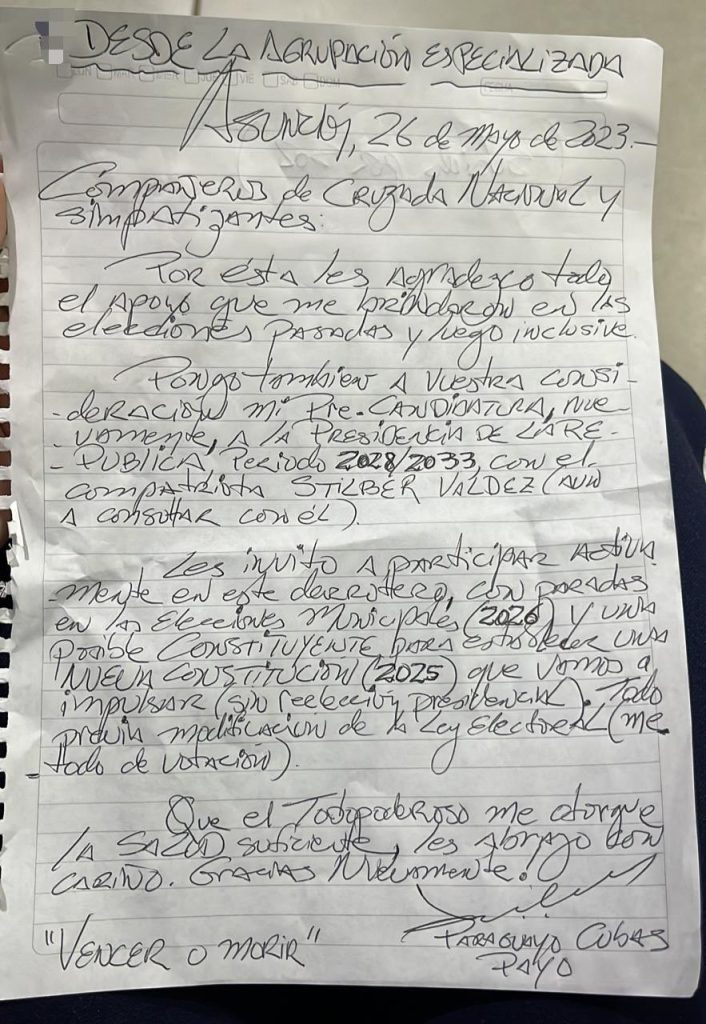 DESDE LA AGRUPACIÓN ESPECIALIZADA
Asunción, 26 de Mayo de 2023.-
Compañeros de Cruzada Nacional y
simpatizantes:
Por ésta les agradezco todo
el apoyo que me brindaron en las
elecciones pasadas y luego inclusive.
Pongo tambien a vuestra consi-
-deración mi Pre-CANDIDATURA, nue-
-vamente, a la PRESIDENCIA DE LA RE-
-PUBLICA, Periodo 2028/2033, con el
compatriota STILBER VALDEZ (AUN
A consultar con él).
Les invito a participar activa
-mente en este derrotero, con paradas
en las Elecciones Municipales (2026) y una
posible CONSTITUYENTE para establecer una
NUEVA CONSTITUCIÓN (2025) que vamos a
impulsar (sin reelección presidencial). Todo
previa modificacion de la Ley Electoral (me
-todo de votación).
Que el Todopodroso me otorgue
la SALUD suficiente, les abrazo con
CARIÑO. Gracias Nuevamente!
"VENCER O MORIR"
PARAGUAYO CUBAS
PAYO